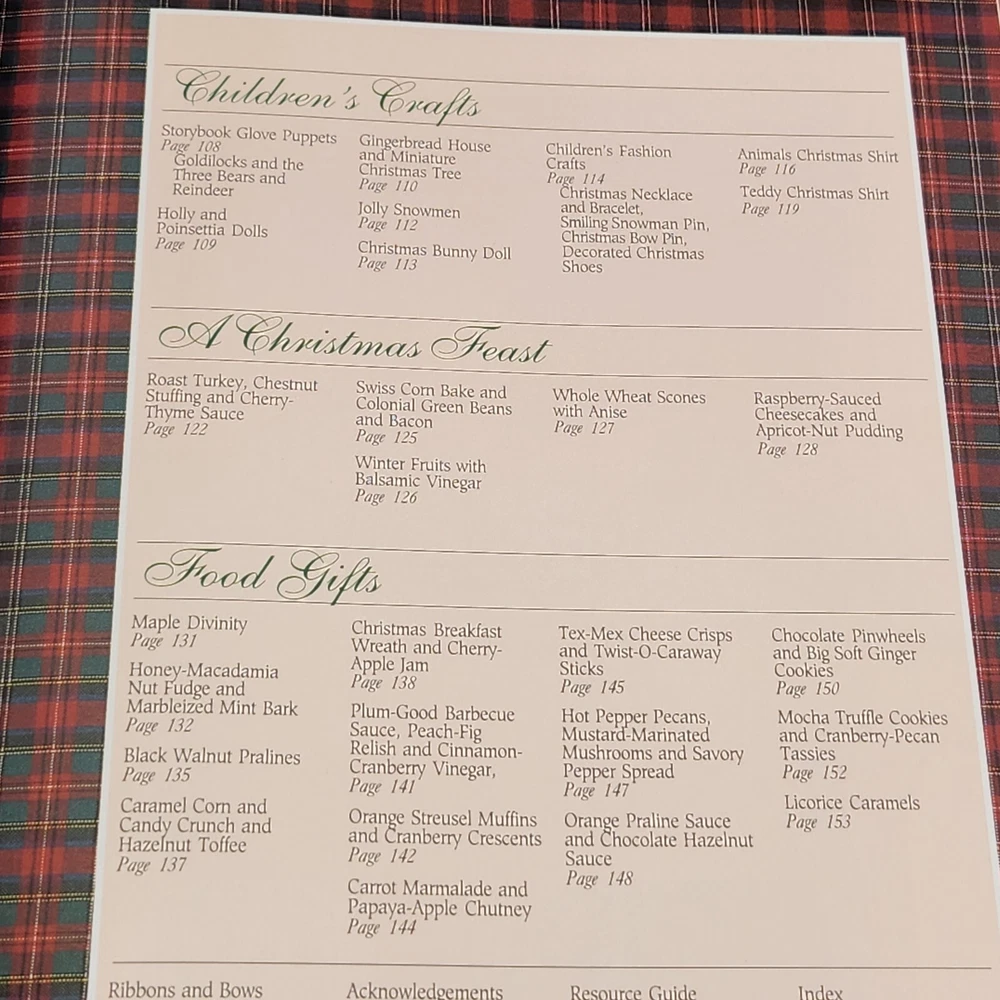 Children's Crafts
Storybook Glove Puppets
Page 108
Goldilocks and the
Three Bears and
Reindeer
Holly and
Poinsettia Dolls
Page 109
Gingerbread House
and Miniature
Christmas Tree
Page 110
Jolly Snowmen
Page 112
Christmas Bunny Doll
Page 113
Children's Fashion
Crafts
Page 114
Christmas Necklace
and Bracelet,
Smiling Snowman Pin,
Christmas Bow Pin,
Decorated Christmas
Shoes
Animals Christmas Shirt
Page 116
Teddy Christmas Shirt
Page 119
A Christmas Feast
Roast Turkey, Chestnut
Stuffing and Cherry-
Thyme Sauce
Page 122
Swiss Corn Bake and
Colonial Green Beans
and Bacon
Page 125
Winter Fruits with
Balsamic Vinegar
Page 126
Whole Wheat Scones
with Anise
Page 127
Raspberry-Sauced
Cheesecakes and
Apricot-Nut Pudding
Page 128
Food Gifts
Maple Divinity
Page 131
Honey-Macadamia
Nut Fudge and
Marbleized Mint Bark
Page 132
Black Walnut Pralines
Page 135
Caramel Corn and
Candy Crunch and
Hazelnut Toffee
Page 137
Christmas Breakfast
Wreath and Cherry-
Apple Jam
Page 138
Plum-Good Barbecue
Sauce, Peach-Fig
Relish and Cinnamon-
Cranberry Vinegar,
Page 141
Orange Streusel Muffins
and Cranberry Crescents
Page 142
Carrot Marmalade and
Papaya-Apple Chutney
Page 144
Tex-Mex Cheese Crisps
and Twist-O-Caraway
Sticks
Page 145
Hot Pepper Pecans,
Mustard-Marinated
Mushrooms and Savory
Pepper Spread
Page 147
Orange Praline Sauce
and Chocolate Hazelnut
Sauce
Page 148
Chocolate Pinwheels
and Big Soft Ginger
Cookies
Page 150
Mocha Truffle Cookies
and Cranberry-Pecan
Tassies
Page 152
Licorice Caramels
Page 153
Ribbons and Bows
Acknowledgements
Resource Guide
Index